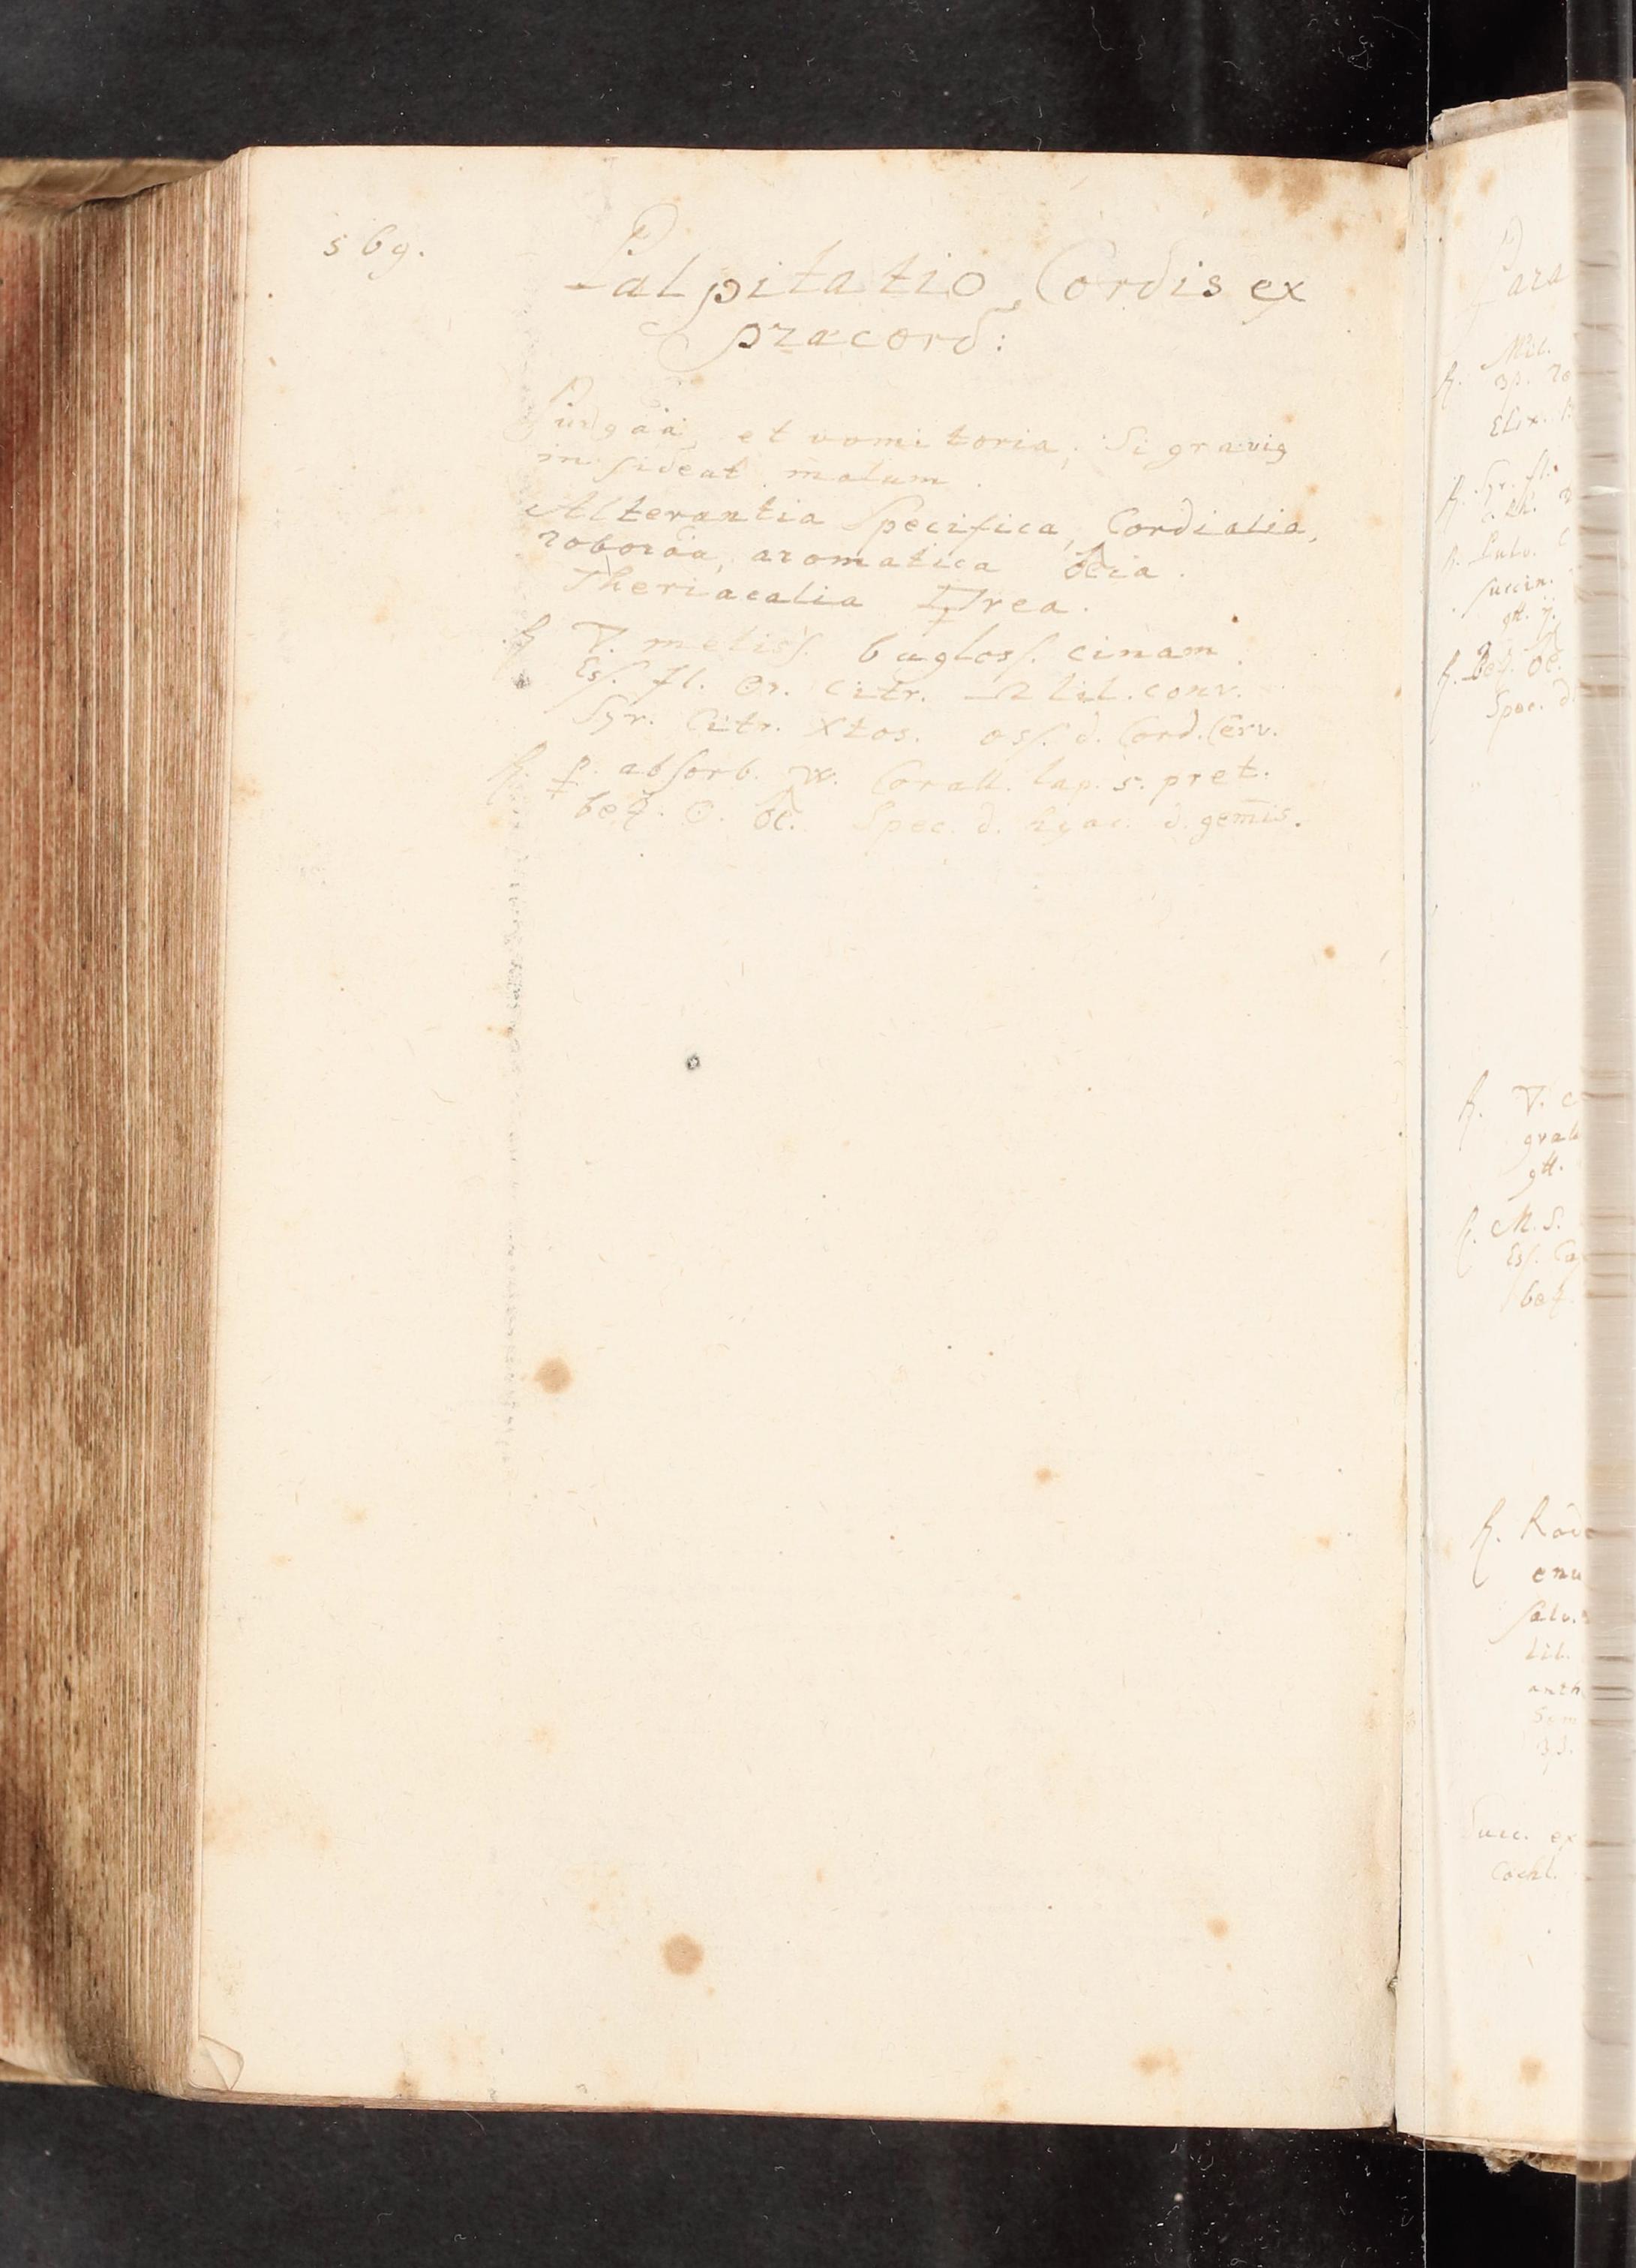 569.
Palpitatio Cordis ex
præcord:
Purgãa, et vomitoria, Si gravis
in sideat malum.
Alterantia Specifica, Cordialia,
roborãa, aromatica
Theriacalia
℞ 🜄. meliss. bugloss. cinam.
Ess. fl. Or. citr. lil. conv.
Syr. Citr. Xtos. oss. d. Cord. Cerv.
℞. absorb. Corall. lap. 5. pret.
bez. Spec. d. hyac. d. gem̄is.
Para
℞.
Elix.
℞. Syr. fl.
℞. Pulv. C
succin.
gtt. ij.
℞. bez.
Spec. d.
℞. 🜄. c
gtt.
℞. M. S.
Ess. Ca
bez.
℞. Rad
enu
salv.
lil.
anth
Succ. ex
Cochl.